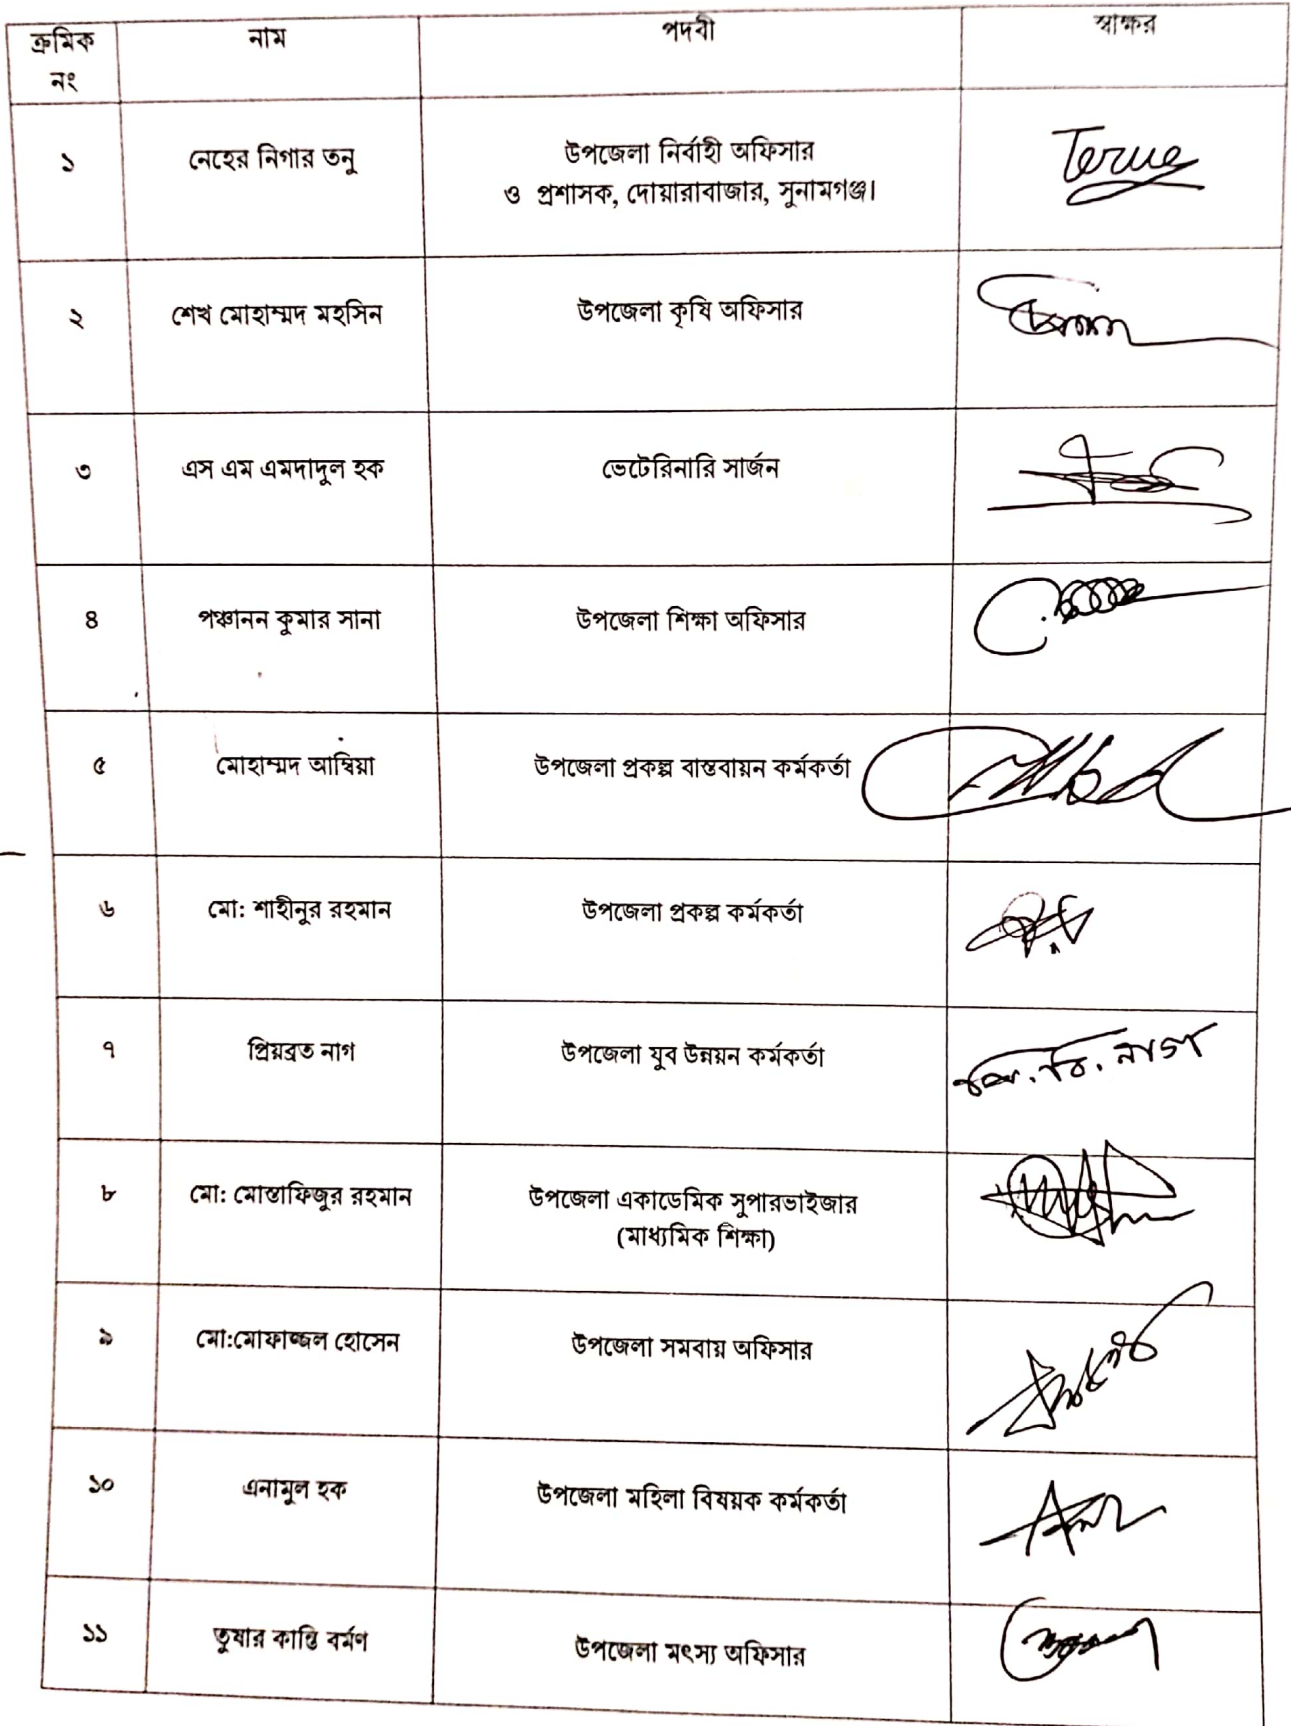 ক্রমিক নং নাম পদবী স্বাক্ষর
১ নেহের নিগার তনু উপজেলা নির্বাহী অফিসার
ও প্রশাসক, দোয়ারাবাজার, সুনামগঞ্জ।
২ শেখ মোহাম্মদ মহসিন উপজেলা কৃষি অফিসার
৩ এস এম এমদাদুল হক ভেটেরিনারি সার্জন
৪ পঞ্চানন কুমার সানা উপজেলা শিক্ষা অফিসার
৫ মোহাম্মদ আম্বিয়া উপজেলা প্রকল্প বাস্তবায়ন কর্মকর্তা
৬ মো: শাহীনুর রহমান উপজেলা প্রকল্প কর্মকর্তা
৭ প্রিয়ব্রত নাগ উপজেলা যুব উন্নয়ন কর্মকর্তা নাগ
৮ মো: মোস্তাফিজুর রহমান উপজেলা একাডেমিক সুপারভাইজার
(মাধ্যমিক শিক্ষা)
৯ মো:মোফাজ্জল হোসেন উপজেলা সমবায় অফিসার
১০ এনামুল হক উপজেলা মহিলা বিষয়ক কর্মকর্তা
১১ তুষার কান্তি বর্মণ উপজেলা মৎস্য অফিসার